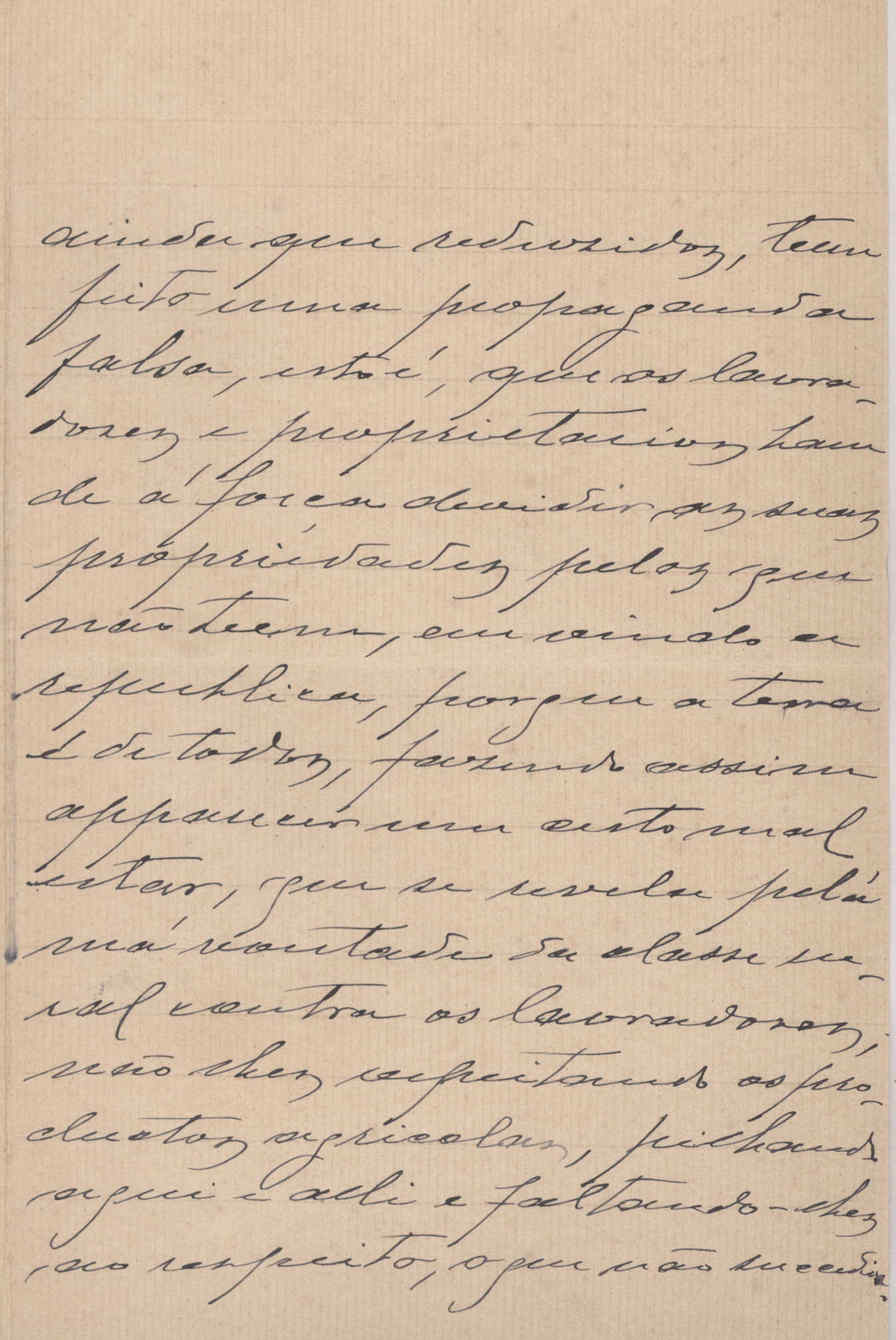 ainda que redusidos, teem
feito uma propaganda
falsa, isto é, que os lavra-
dores e proprietarios ham
de á força devidir as suas
propriedades pelos que
não teem, em vindo a
republica, porque a terra
é de todos, fazendo assim
apparecer um certo mal
estar, que se revela pela
má vontade da classe ru-
ral contra os lavradores,
não lhes respeitando os pro-
ductos agricolas, pilhando
aqui e alli e faltando-lhes
ao respeito, o que não succedia